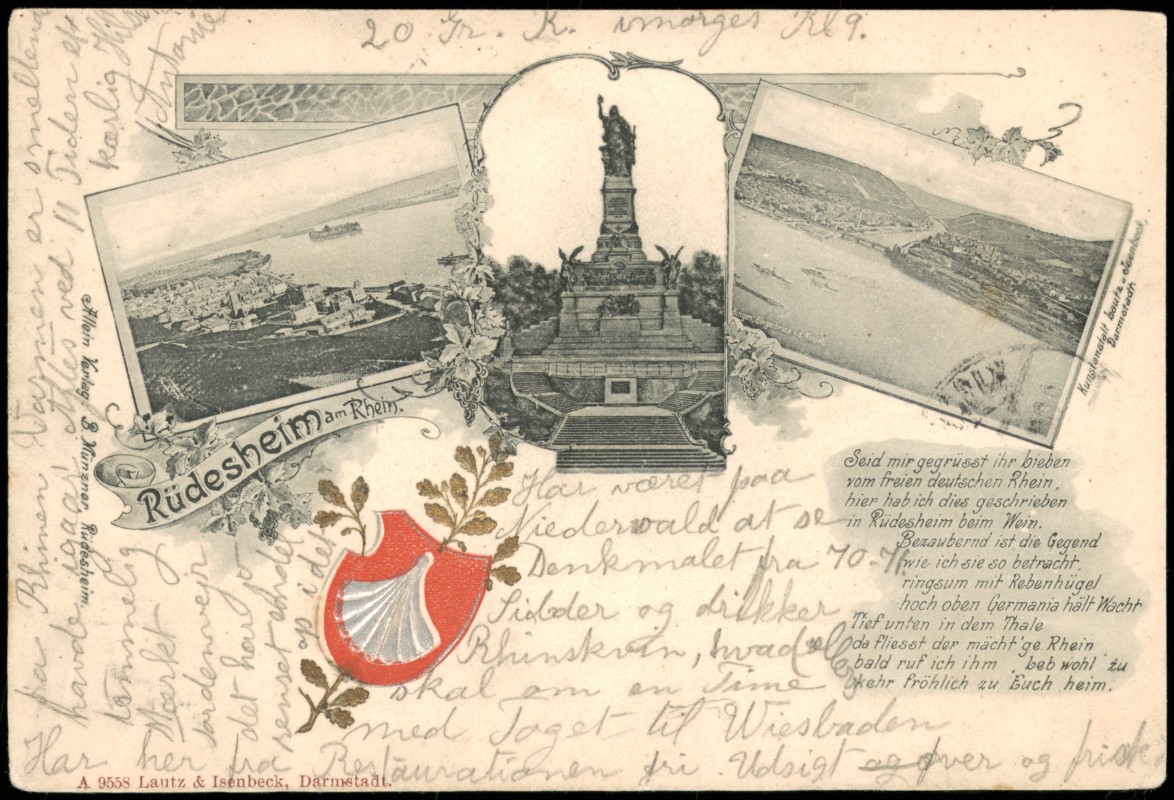 20 Gr. K. imorges Kl 9.
Rüdesheim am Rhein.
Allein Verlag B. Rüdesheim.
Kunstanstalt Lautz & Isenbeck,
Darmstadt.
Seid mir gegrüsst ihr Lieben
vom freien deutschen Rhein,
hier hab ich dies geschrieben
in Rüdesheim beim Wein.
Bezaubernd ist die Gegend
wie ich sie so betracht,
ringsum mit Rebenhügel
hoch oben Germania hält Wacht
Tief unten in dem Thale
da fliesst der mächt'ge Rhein
bald ruf ich ihm Leb wohl zu
kehr fröhlich zu Euch heim.
Har været paa
Niederwald at se
Denkmalet fra 70-71
og drikker
skal om en Time
med Toget til Wiesbaden
Har her fra Restaurationen fri Udsigt over og
paa Rhinen Varmen er smeltende
havde Alles ved 11 Tiden et
temmelig kærlig
Markt Antonie
det har jo
op i det
A 9558 Lautz & Isenbeck, Darmstadt.